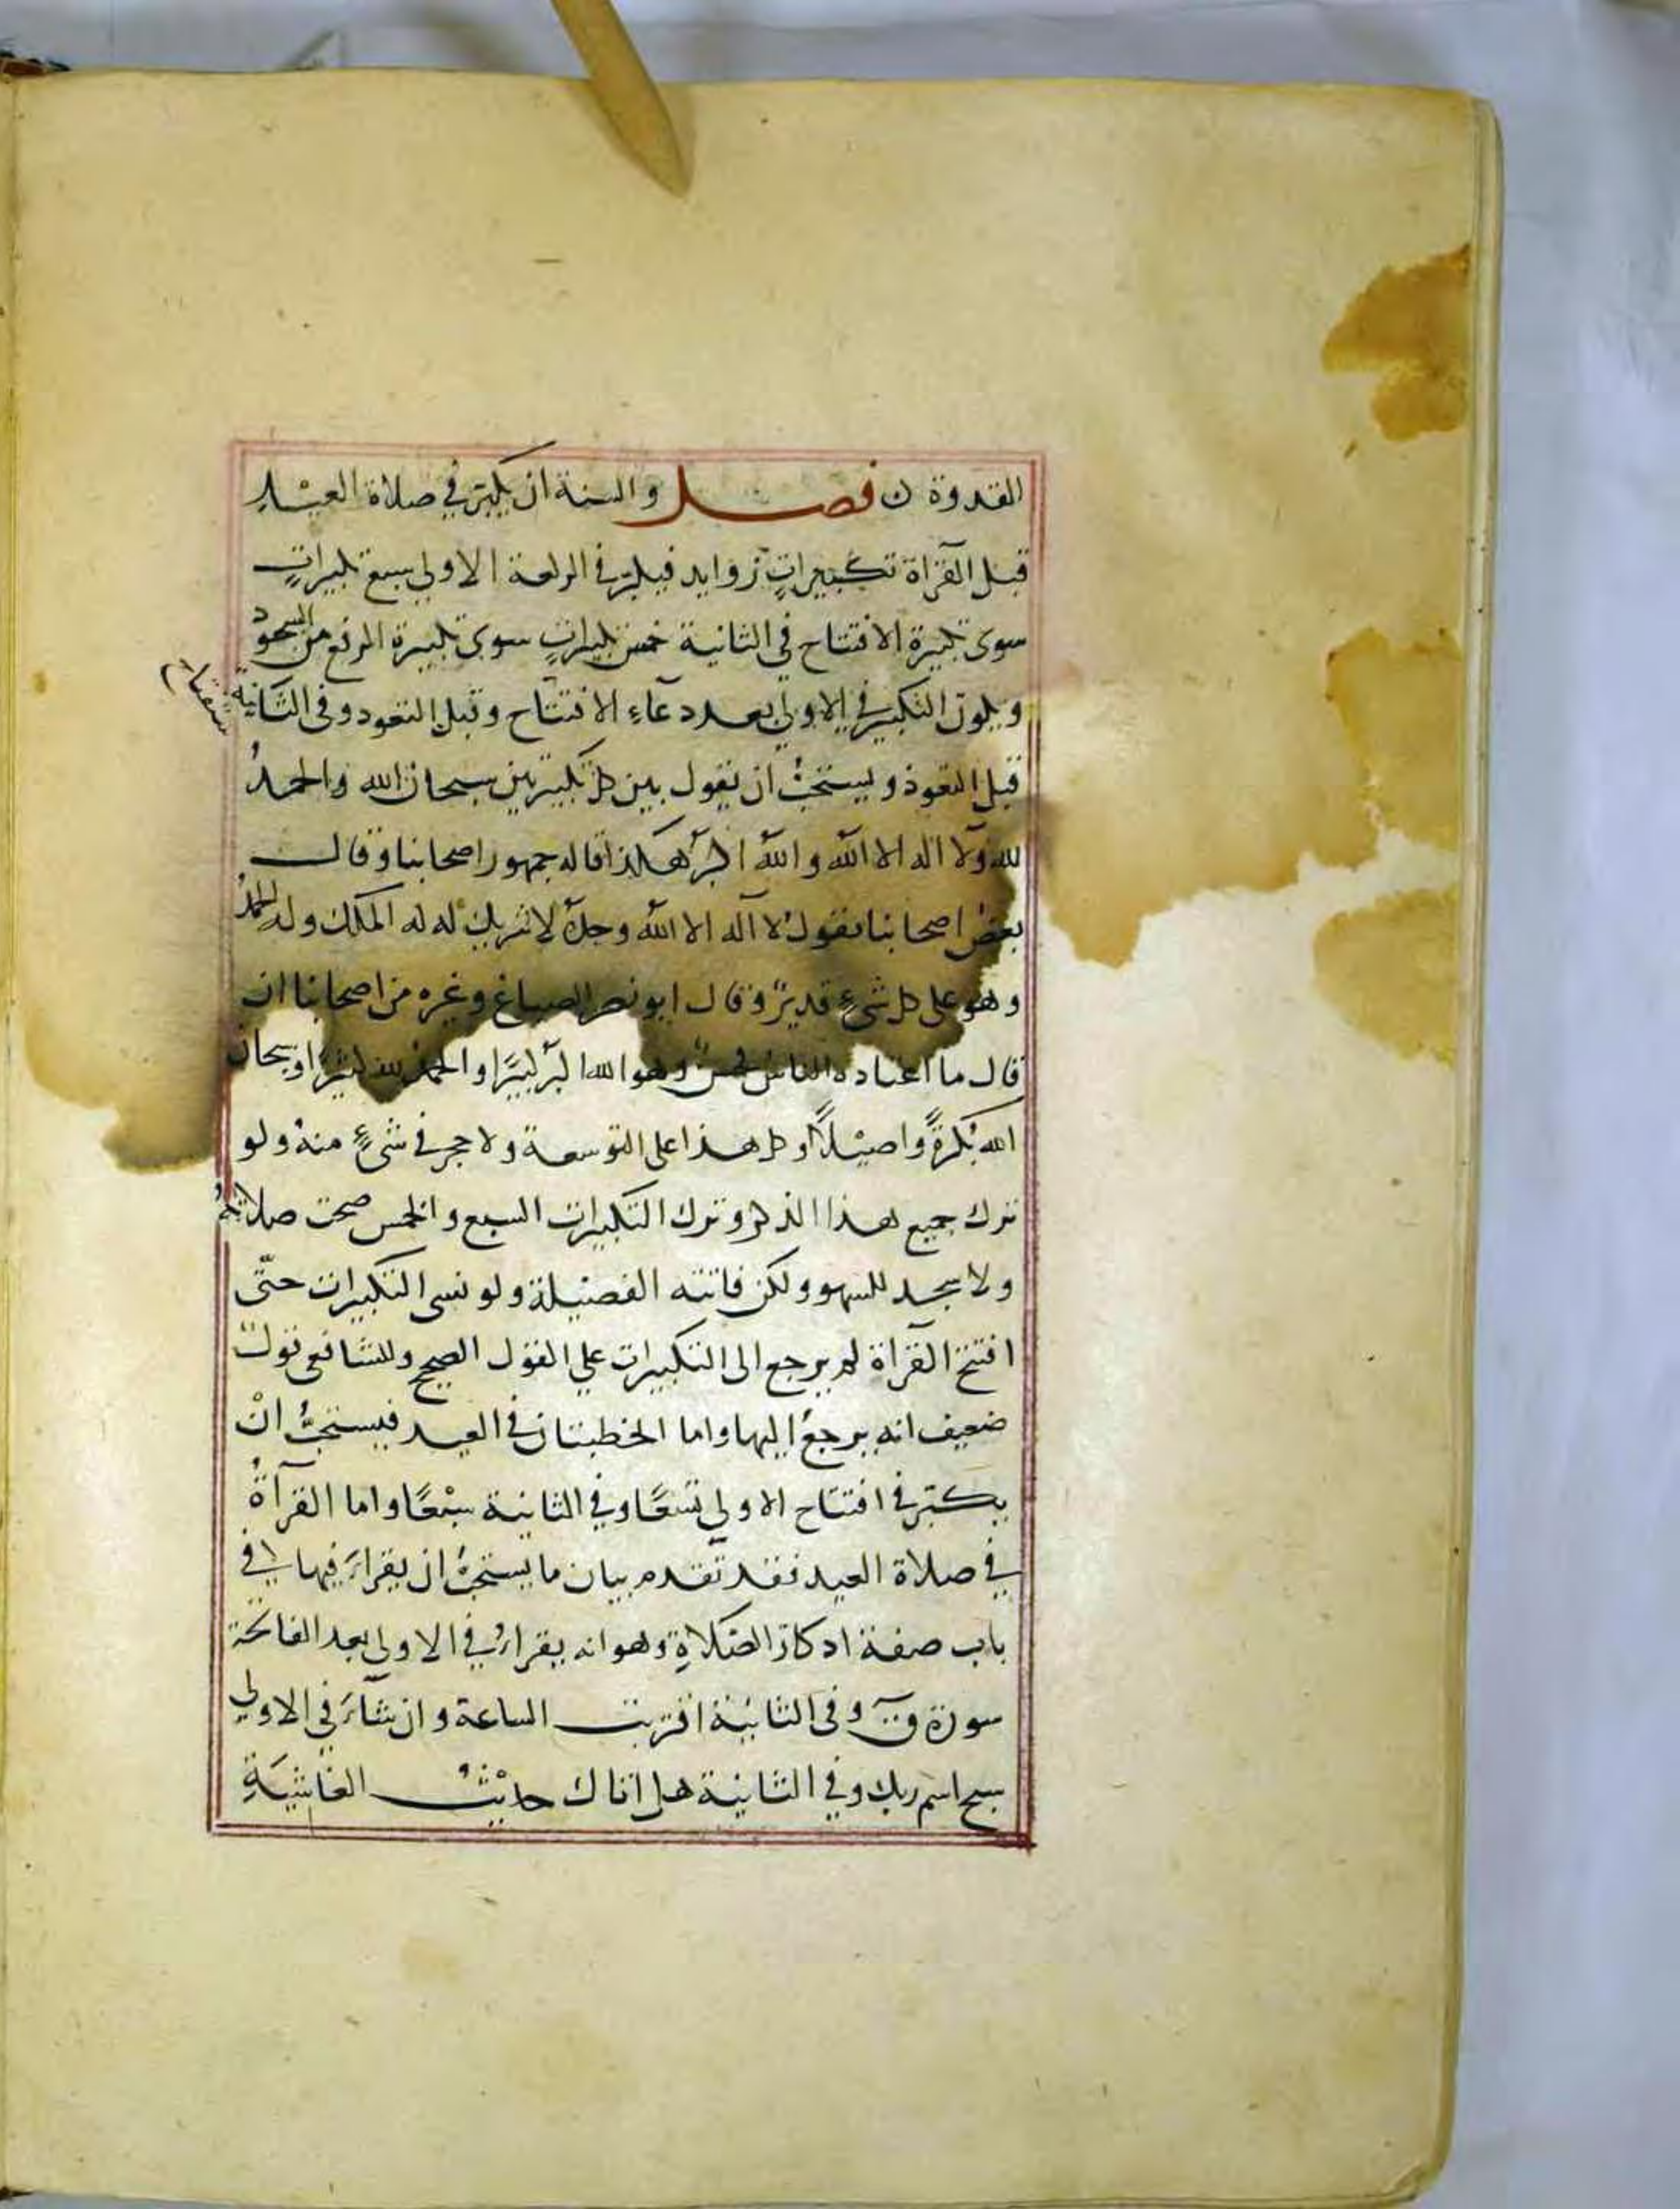 القدوة ن فصل والسنة ان يكبر في صلاة العيد
قبل القرآة تكبيرات زوايد فيكبر في الركعة الاولي سبع تكبيرات
سوي تكبيرة الافتتاح في الثانية خمس تكبيرات سوي تكبيرة الرفع من السجود
ويكون التكبير في الاولي بعد دعاء الافتتاح وقبل التعوذ وفي الثانية
قبل التعوذ ويستحب ان يقول بين كل تكبيرتين سبحان الله والحمد
لله ولا اله الا الله والله اكبر هكذا قاله جمهور اصحابنا وقال
بعض اصحابنا يقول لا اله الا الله وحده لا شريك له له الملك وله الحمد
وهو على كل شيء قدير وقال ابو نصر الصباغ وغيره من اصحابنا ان
قال ما اعتاده الناس فحسن وهو الله اكبر كبيرًا والحمد لله كثيرًا وسبحان
الله بكرةً واصيلًا وكل هذا على التوسعة ولا حجر في شيءٍ منه ولو
ترك جميع هذا الذكر وترك التكبيرات السبع والخمس صحت صلاته
ولا يسجد للسهو ولكن فاتته الفضيلة ولو نسي التكبيرات حتّى
افتتح القرآة لم يرجع الى التكبيرات علي القول الصحيح وللشافعي قول
ضعيف انه يرجع اليها واما الخطبتان في العيد فيستحبُّ انْ
يكبّر في افتتاح الاولي تسعًا وفي الثانية سبْعًا واما القرآةُ
في صلاة العيد فقد تقدم بيان ما يستحب ان يقراء فيها في
باب صفة اذكار الصلاة وهو انه يقراء في الاولي بعد الفاتحة
سورة ق وفي الثانية اقتربت الساعة وان شآء في الاولي
سبح اسم ربك وفي الثانية هل اتاك حديث الغاشية